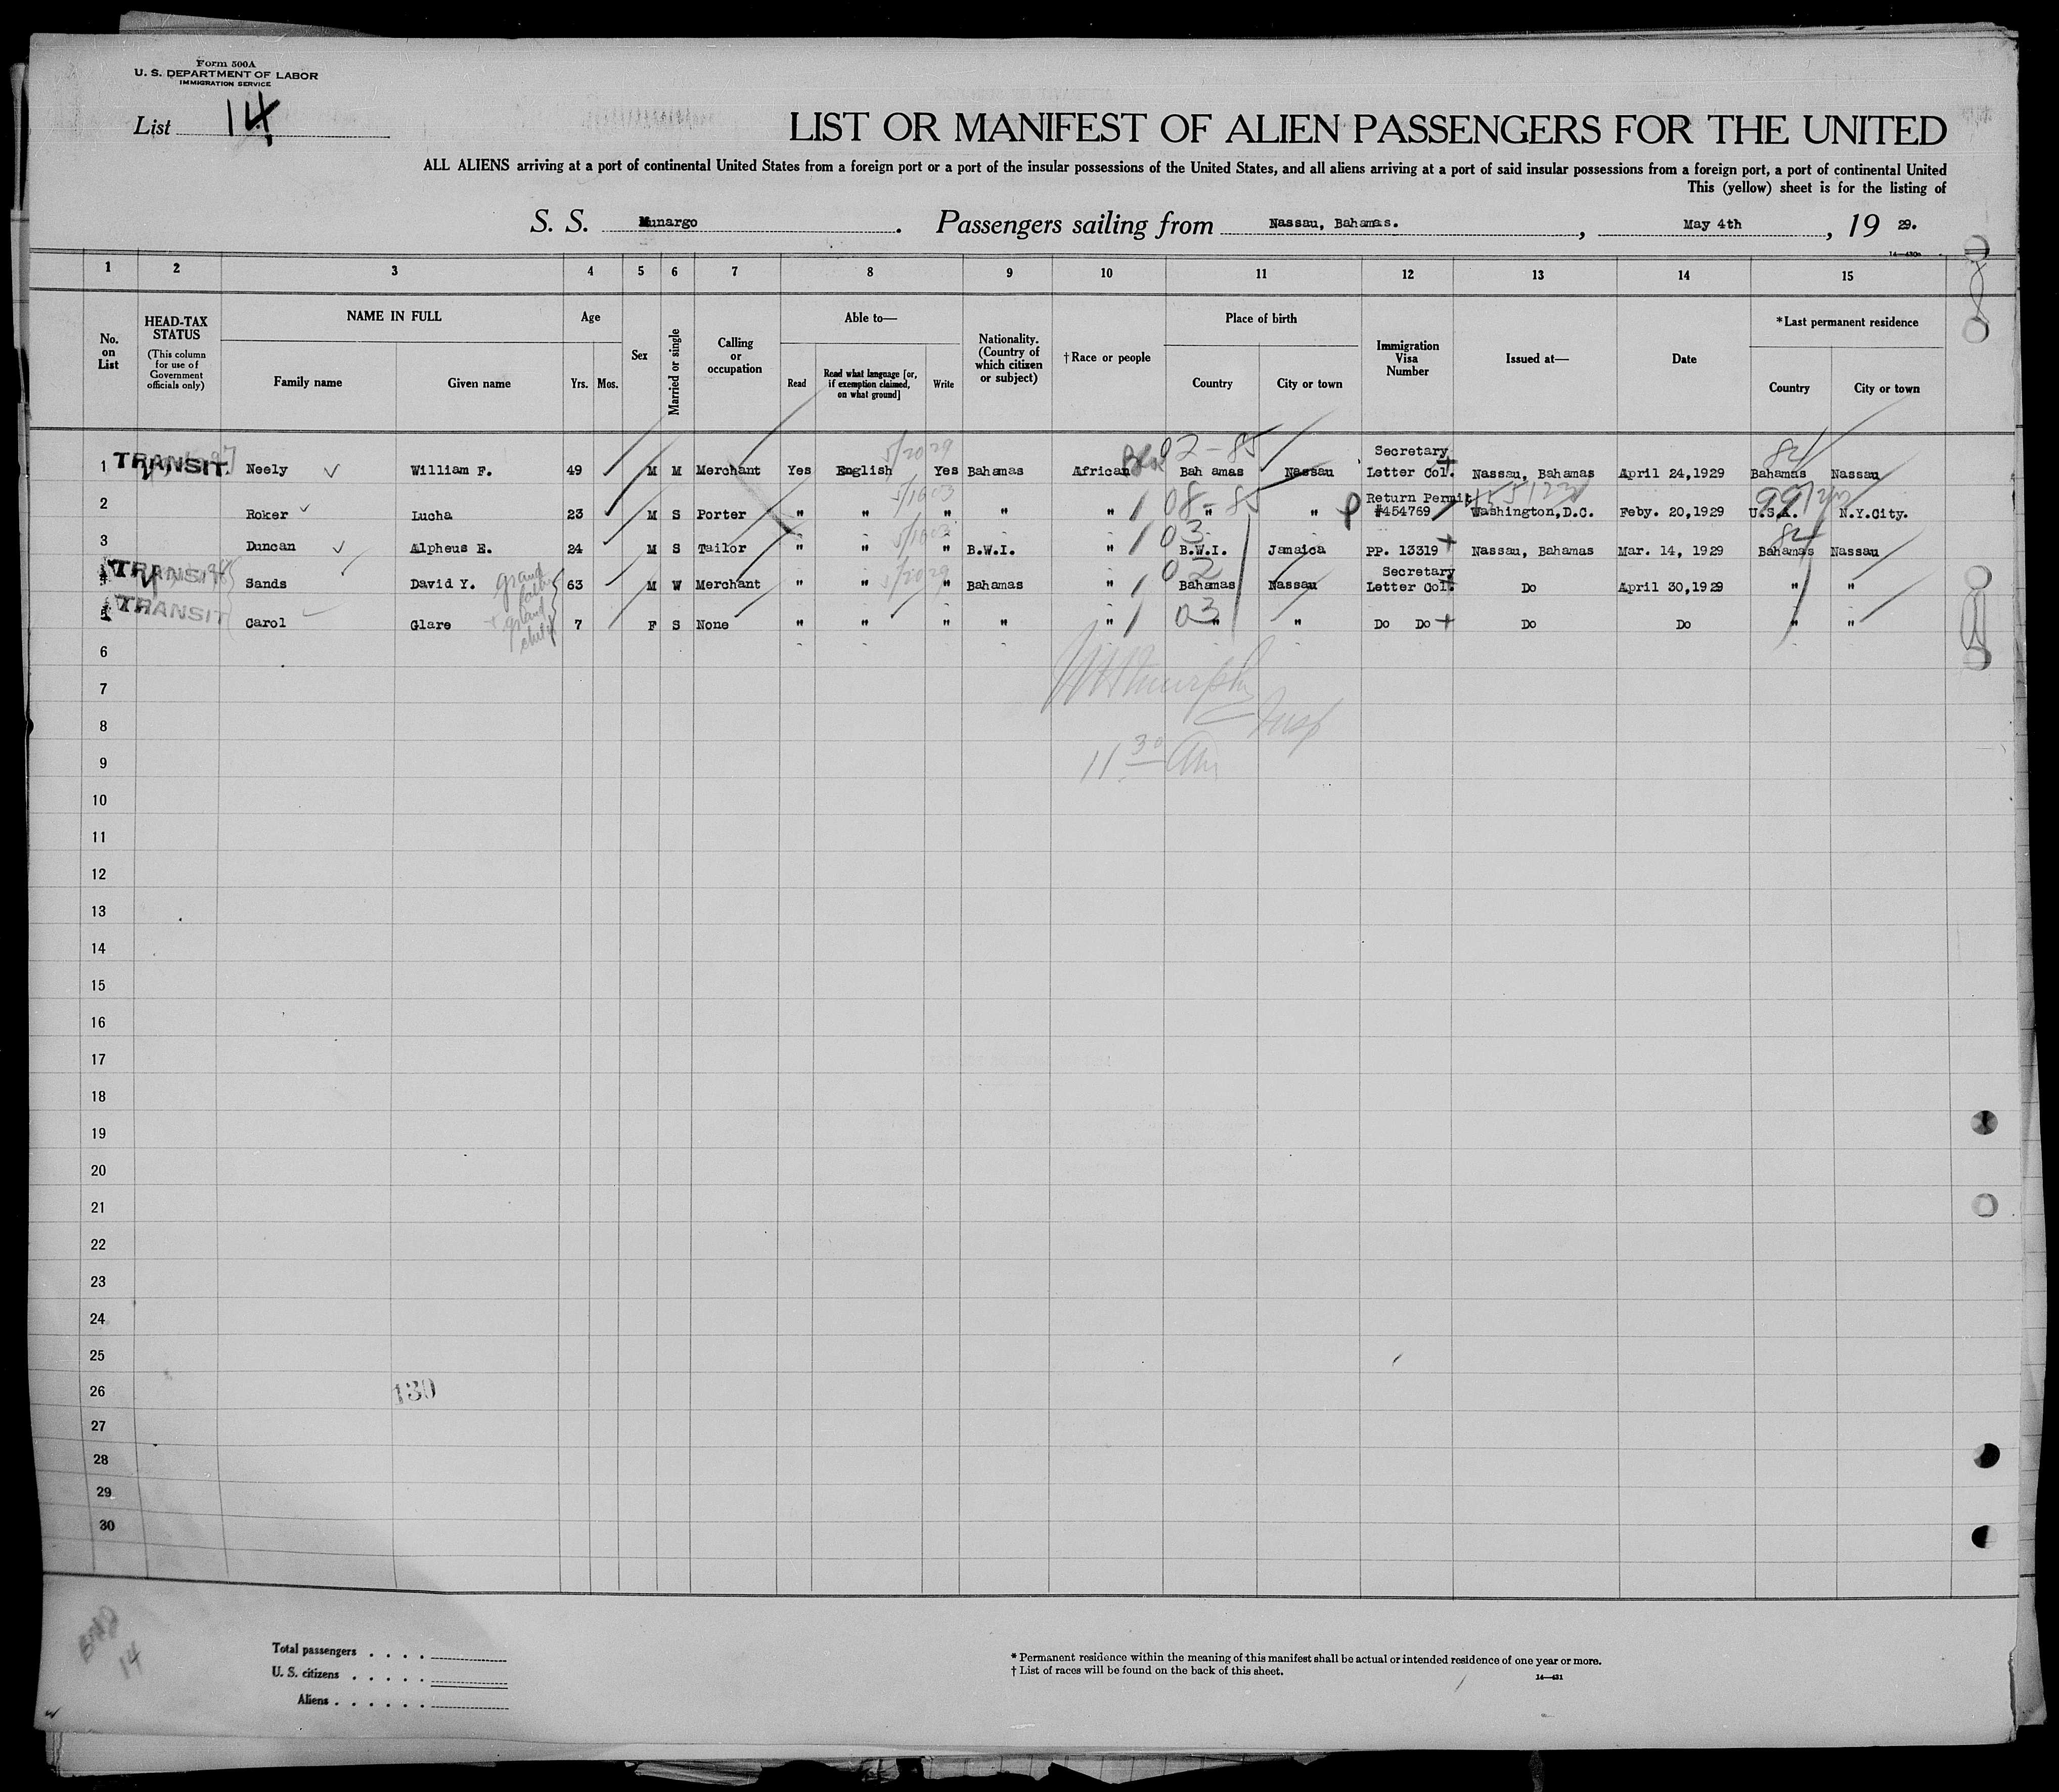 Form 500A
U. S. DEPARTMENT OF LABOR
IMMIGRATION SERVICE
List 14
LIST OR MANIFEST OF ALIEN PASSENGERS FOR THE UNITED
ALL ALIENS arriving at a port of continental United States from a foreign port or a port of the insular possessions of the United States, and all aliens arriving at a port of said insular possessions from a foreign port, a port of continental United
This (yellow) sheet is for the listing of
S. S. Munargo. Passengers sailing from Nassau, Bahamas., May 4th, 19 29.
14—430a
1 2 3 4 5 6 7 8 9 10 11 12 13 14 15
No. on List
HEAD-TAX STATUS (This column for use of Government officials only)
NAME IN FULL
Family name
Given name
Age
Yrs. Mos.
Sex
Married or single
Calling or occupation
Able to—
Read
Read what language [or, if exemption claimed, on what ground]
Write
Nationality. (Country of which citizen or subject)
†Race or people
Place of birth
Country
City or town
Immigration Visa Number
Issued at—
Date
*Last permanent residence
Country
City or town
5/20 29 02-85 82
1 TRANSIT. Neely William F. 49 M M Merchant Yes English Yes Bahamas African Bah amas Nassau Secretary Letter Col. Nassau, Bahamas April 24,1929 Bahamas Nassau
5/1603 08-85 99
2 Roker Lucha 23 M S Porter " " " " " " " Return Permit #454769 Washington,D.C. Feby. 20,1929 U.S.A. N.Y.City.
5/1603 03 82
3 Duncan Alpheus E. 24 M S Tailor " " " B.W.I. " B.W.I. Jamaica PP. 13319 Nassau, Bahamas Mar. 14, 1929 Bahamas Nassau
5/2029 02
4 TRANSIT Sands David Y. grand father 63 M W Merchant " " " Bahamas " Bahamas Nassau Secretary Letter Col. Do April 30,1929 " "
03
5 TRANSIT Carol Glare + grand child 7 F S None " " " " " " " Do Do Do Do " "
6
7
8
9
Murphy
Insp
11 30 am
10
11
12
13
14
15
16
17
18
19
20
21
22
23
24
25
26
130
27
28
29
30
14
Total passengers . . . .
U. S. citizens . . . . .
Aliens . . . . . .
* Permanent residence within the meaning of this manifest shall be actual or intended residence of one year or more.
† List of races will be found on the back of this sheet.
14—431